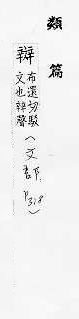 類篇
辬
布還切駁
文也辡聲
(文部 P.318)